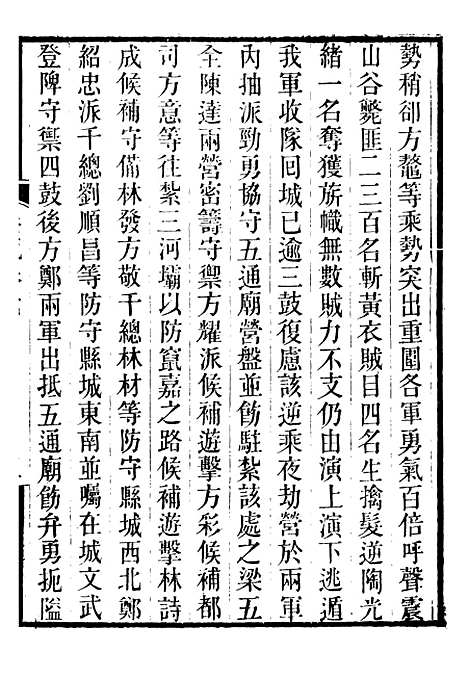 勢稍卻方鼇等乘勢突出重圍各軍勇氣百倍呼聲震
山谷斃匪二三百名斬黃衣賊目四名生擒髮逆陶光
緒一名奪獲旂幟無數賊力不支仍由演上演下逃遁
我軍收隊回城已逾三鼓復慮該逆乘夜劫營於兩軍
內抽派勁勇協守五通廟營盤並飭駐紮該處之梁五
全陳達兩營密籌守禦方耀派候補遊擊方彩候補都
司方意等往紮三河壩以防竄嘉之路候補遊擊林詩
成候補守備林發方敬千總林材等防守縣城西北鄭
紹忠派千總劉順昌等防守縣城東南並囑在城文武
登陴守禦四鼓後方鄭兩軍出抵五通廟飭弁勇扼隘